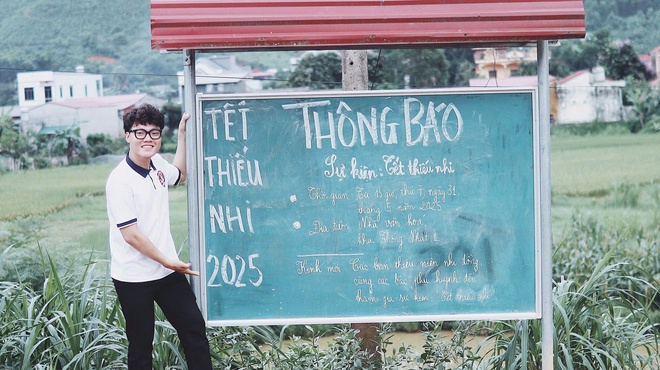 TẾT
THIẾU
NHI
2025
THÔNG BÁO
Sự kiện: Tết thiếu nhi
Thời gian: Từ 15 giờ, thứ 7, ngày 31
tháng 5 năm 2025
Địa điểm: Nhà văn hóa
khu Thống Nhất
Kính mời: Các bạn thiếu niên nhi đồng
cùng các bậc phụ huynh đến
tham dự sự kiện Tết thiếu nhi